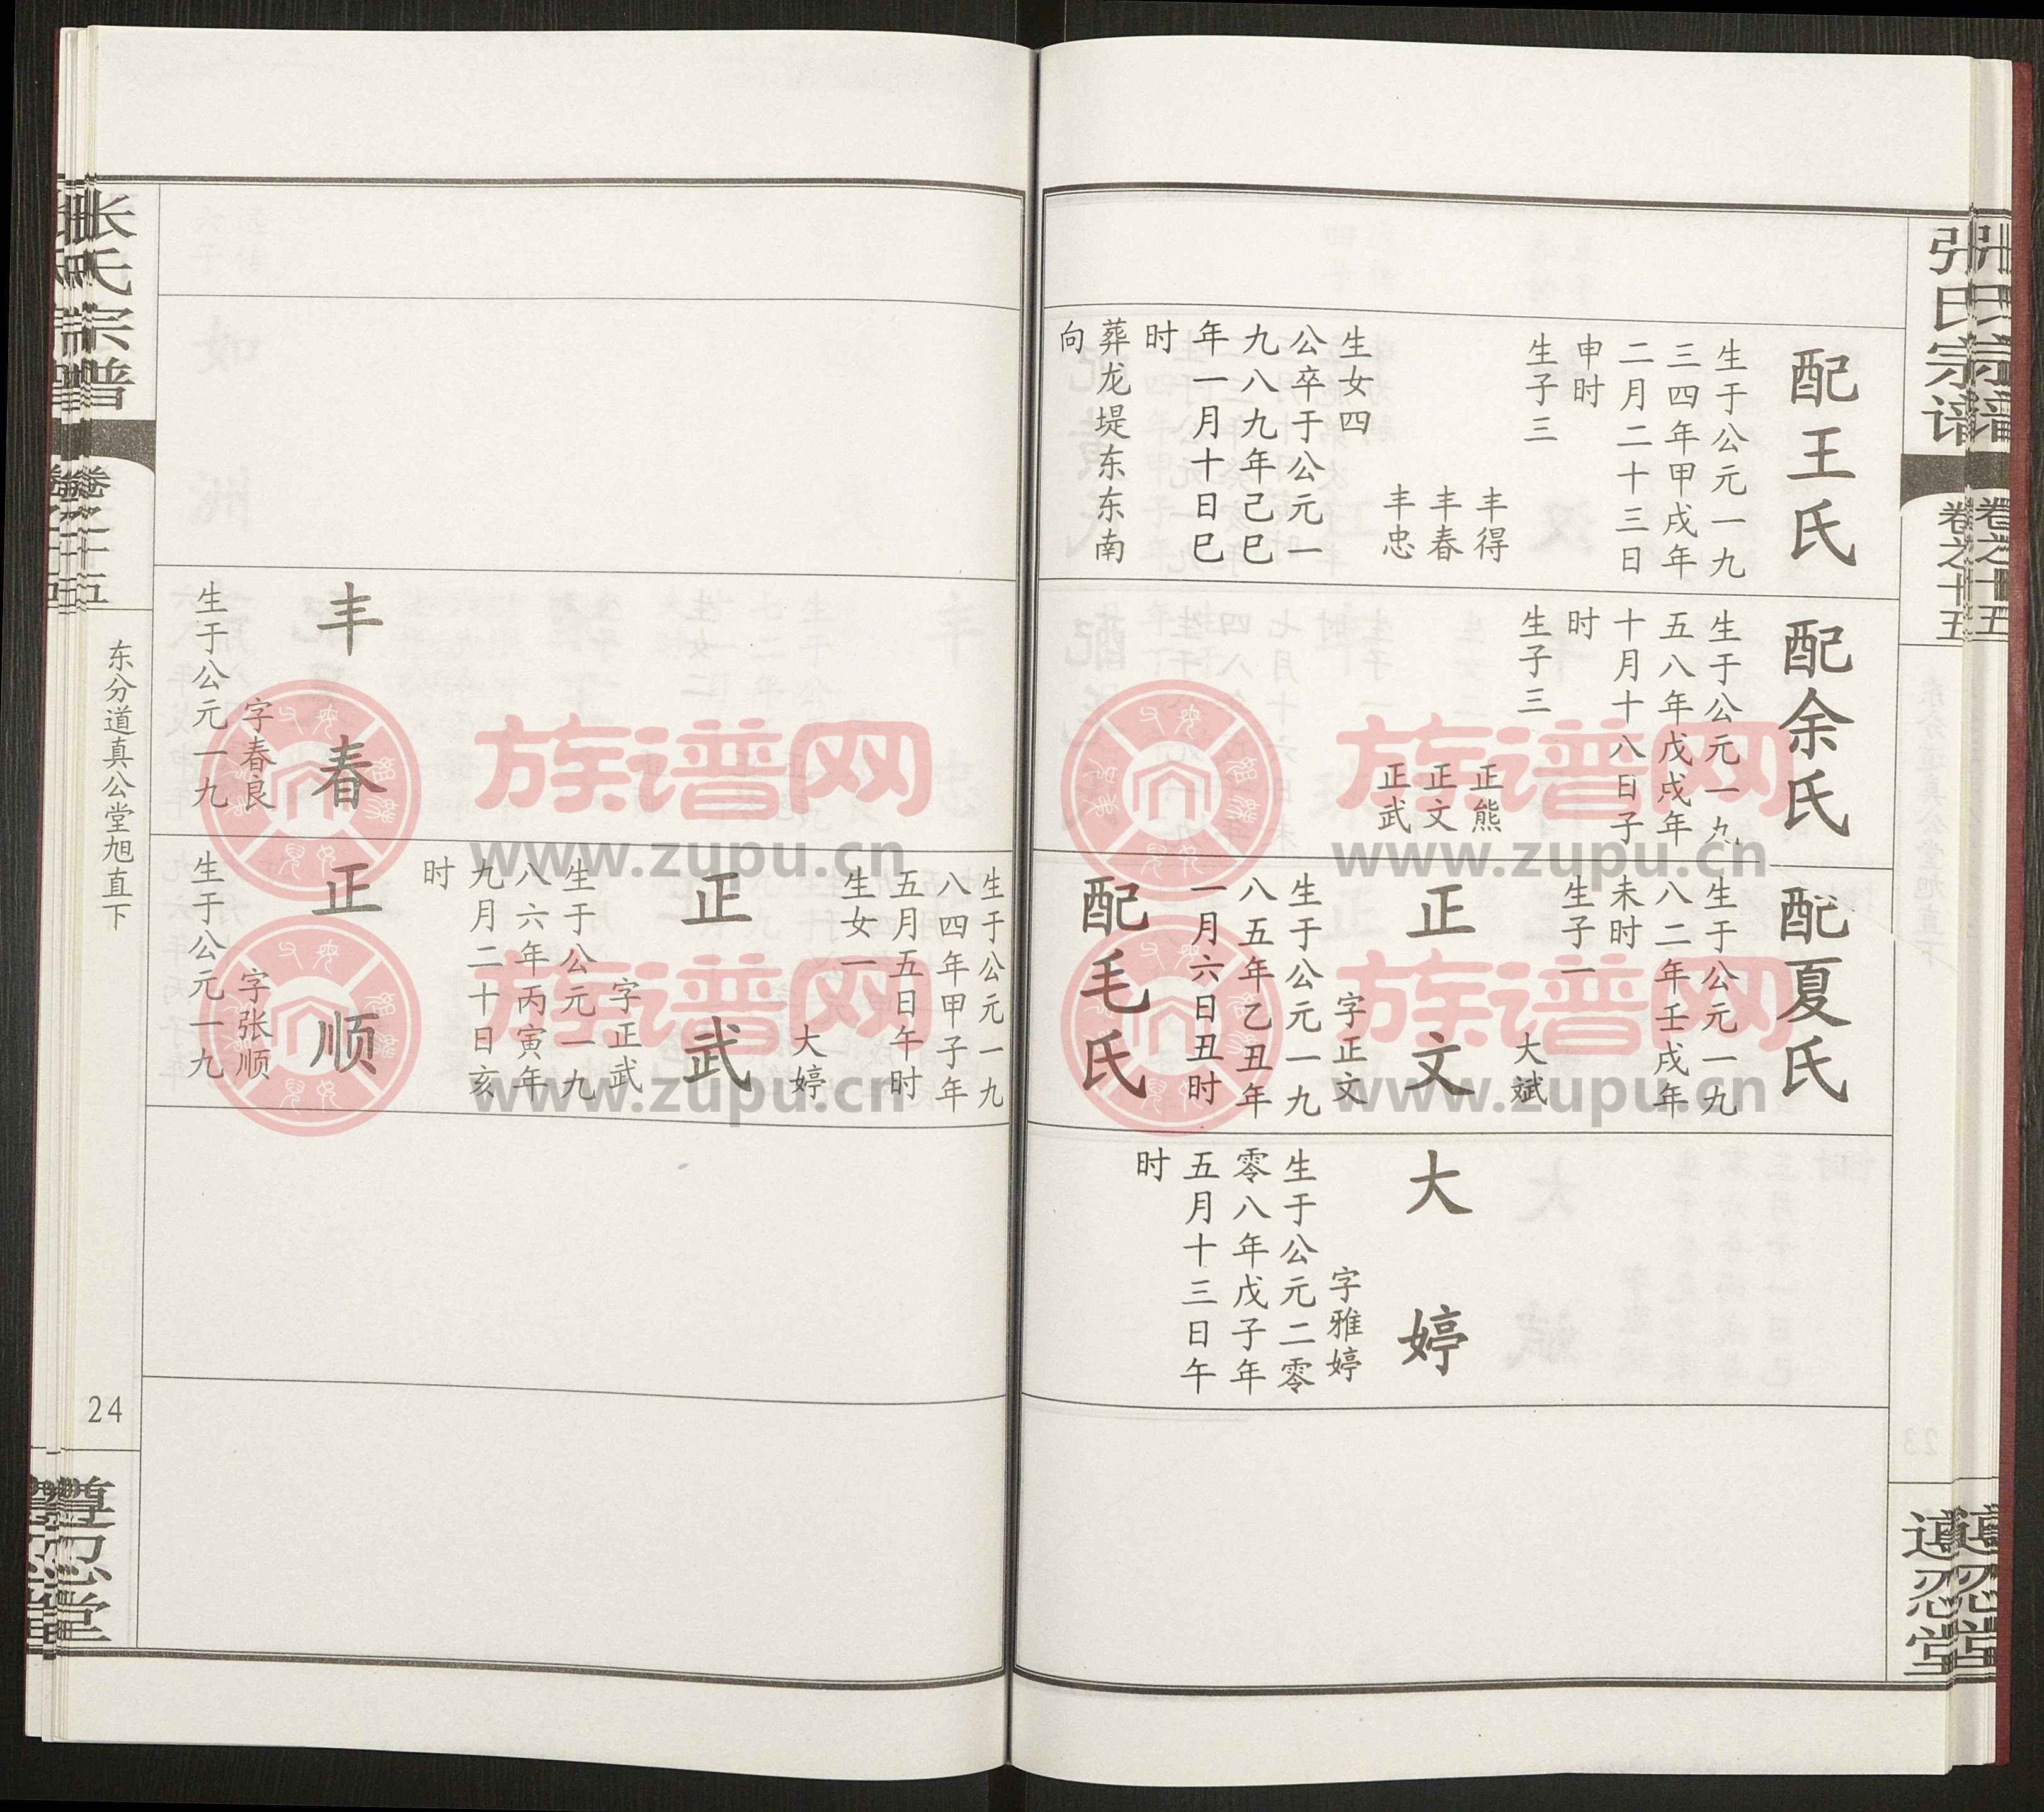 张氏宗谱
卷之十五
道忍堂
配王氏
生于公元一九
三四年甲戌年
二月二十三日
申时
生子三
丰得
丰春
丰忠
生女四
公卒于公元一
九八九年己巳
年一月十日巳
时
葬龙堤东东南
向
配余氏
生于公元一九
五八年戊戌年
十月十八日子
时
生子三
正熊
正文
正武
配夏氏
生于公元一九
八二年壬戌年
未时
生子一
大斌
正文
字正文
生于公元一九
八五年乙丑年
一月六日丑时
配毛氏
大婷
字雅婷
生于公元二零
零八年戊子年
五月十三日午
时
丰春
字春良
生于公元一九
生于公元一九
八四年甲子年
五月五日午时
生女一
大婷
正武
字正武
生于公元一九
八六年丙寅年
九月二十日亥
时
正顺
字张顺
生于公元一九
张氏宗谱
卷之十五
东分道真公堂旭直下
24
族谱网
www.zupu.cn
族谱网
www.zupu.cn
族谱网
www.zupu.cn
族谱网
www.zupu.cn